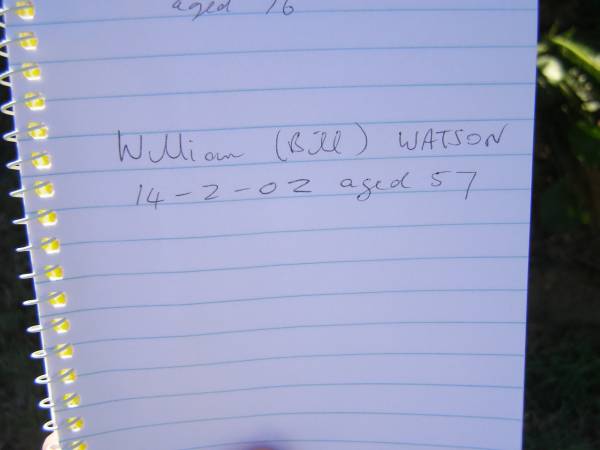 aged 76
William (Bill) WATSON
14-2-02 aged 57